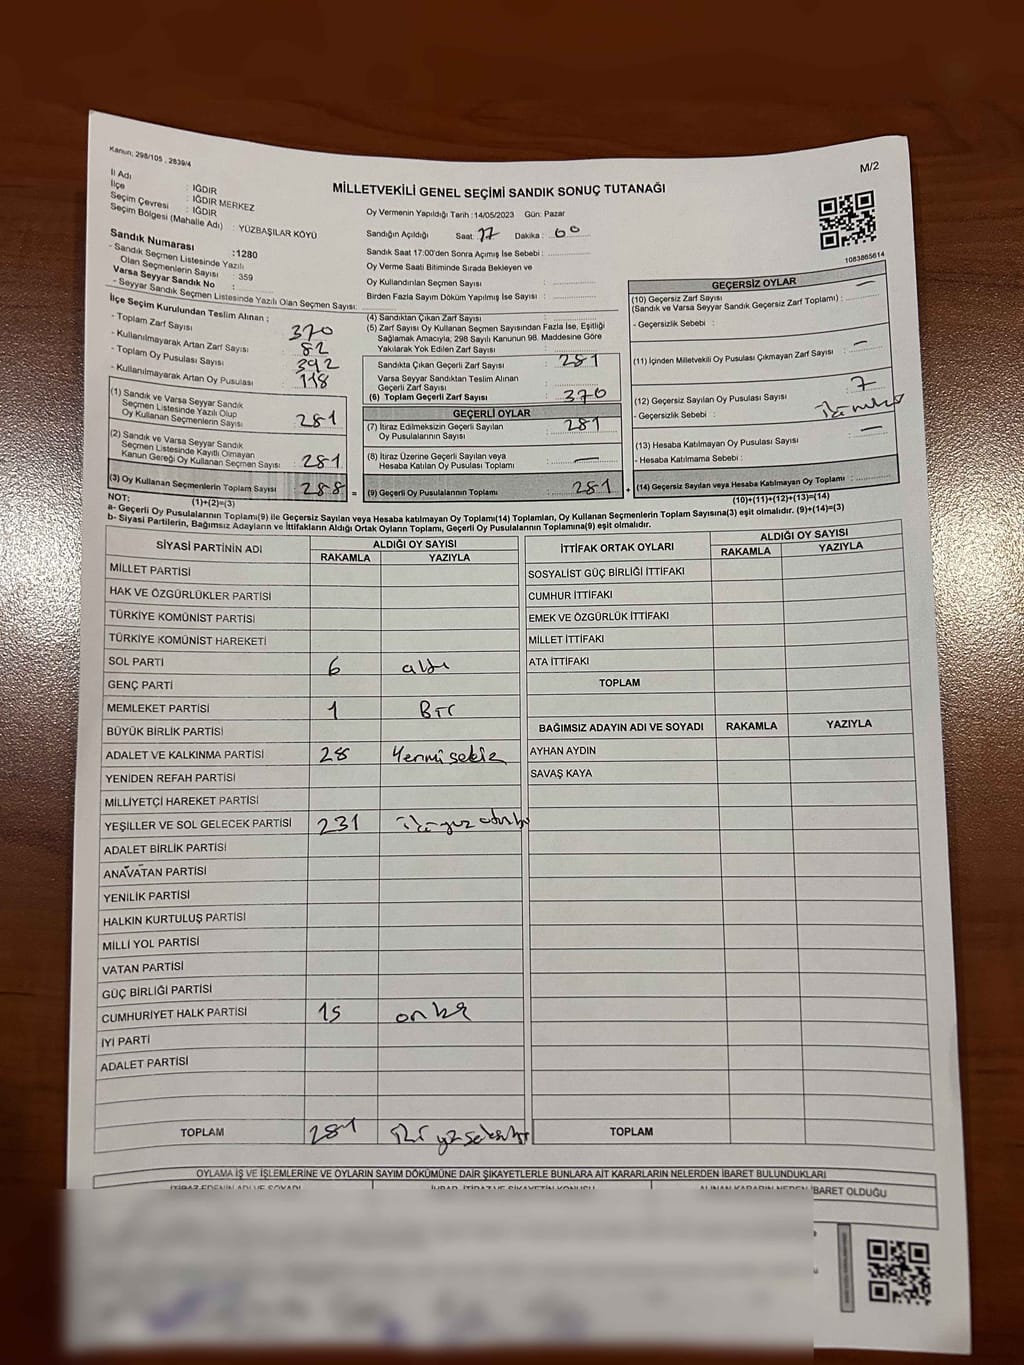 Kanun; 298/105 , 2839/4
M/2
MİLLETVEKİLİ GENEL SEÇİMİ SANDIK SONUÇ TUTANAĞI
İl Adı : IĞDIR
İlçe : IĞDIR MERKEZ
Seçim Çevresi : IĞDIR
Seçim Bölgesi (Mahalle Adı) : YÜZBAŞILAR KÖYÜ
Sandık Numarası :1280
- Sandık Seçmen Listesinde Yazılı
Olan Seçmenlerin Sayısı : 359
Varsa Seyyar Sandık No :
- Seyyar Sandık Seçmen Listesinde Yazılı Olan Seçmen Sayısı:
Oy Vermenin Yapıldığı Tarih :14/05/2023 Gün: Pazar
Sandığın Açıldığı Saat: 17 Dakika: 00
Sandık Saat 17:00'den Sonra Açılmış İse Sebebi :
Oy Verme Saati Bitiminde Sırada Bekleyen ve
Oy Kullandırılan Seçmen Sayısı :
Birden Fazla Sayım Döküm Yapılmış İse Sayısı :
1083865614
İlçe Seçim Kurulundan Teslim Alınan ;
- Toplam Zarf Sayısı : 370
- Kullanılmayarak Artan Zarf Sayısı : 82
- Toplam Oy Pusulası Sayısı : 392
- Kullanılmayarak Artan Oy Pusulası : 118
(1) Sandık ve Varsa Seyyar Sandık
Seçmen Listesinde Yazılı Olup
Oy Kullanan Seçmenlerin Sayısı : 281
(2) Sandık ve Varsa Seyyar Sandık
Seçmen Listesinde Kayıtlı Olmayan
Kanun Gereği Oy Kullanan Seçmen Sayısı : 281
(3) Oy Kullanan Seçmenlerin Toplam Sayısı : 288
(1)+(2)=(3)
(4) Sandıktan Çıkan Zarf Sayısı :
(5) Zarf Sayısı Oy Kullanan Seçmen Sayısından Fazla İse, Eşitliği
Sağlamak Amacıyla; 298 Sayılı Kanunun 98. Maddesine Göre
Yakılarak Yok Edilen Zarf Sayısı :
Sandıkta Çıkan Geçerli Zarf Sayısı : 281
Varsa Seyyar Sandıktan Teslim Alınan
Geçerli Zarf Sayısı :
(6) Toplam Geçerli Zarf Sayısı : 370
GEÇERLİ OYLAR
(7) İtiraz Edilmeksizin Geçerli Sayılan
Oy Pusulalarının Sayısı : 281
(8) İtiraz Üzerine Geçerli Sayılan veya
Hesaba Katılan Oy Pusulası Toplamı : —
= (9) Geçerli Oy Pusulalarının Toplamı : 281
GEÇERSİZ OYLAR
(10) Geçersiz Zarf Sayısı
(Sandık ve Varsa Seyyar Sandık Geçersiz Zarf Toplamı) : —
- Geçersizlik Sebebi :
(11) İçinden Milletvekili Oy Pusulası Çıkmayan Zarf Sayısı : —
(12) Geçersiz Sayılan Oy Pusulası Sayısı : 7
- Geçersizlik Sebebi :
(13) Hesaba Katılmayan Oy Pusulası Sayısı : —
- Hesaba Katılmama Sebebi :
+ (14) Geçersiz Sayılan veya Hesaba Katılmayan Oy Toplamı :
(10)+(11)+(12)+(13)=(14)
NOT:
a- Geçerli Oy Pusulalarının Toplamı(9) ile Geçersiz Sayılan veya Hesaba katılmayan Oy Toplamı(14) Toplamları, Oy Kullanan Seçmenlerin Toplam Sayısına(3) eşit olmalıdır. (9)+(14)=(3)
b- Siyasi Partilerin, Bağımsız Adayların ve İttifakların Aldığı Ortak Oyların Toplamı, Geçerli Oy Pusulalarının Toplamına(9) eşit olmalıdır.
SİYASİ PARTİNİN ADI ALDIĞI OY SAYISI
RAKAMLA YAZIYLA
MİLLET PARTİSİ
HAK VE ÖZGÜRLÜKLER PARTİSİ
TÜRKİYE KOMÜNİST PARTİSİ
TÜRKİYE KOMÜNİST HAREKETİ
SOL PARTİ 6 altı
GENÇ PARTİ
MEMLEKET PARTİSİ 1 Bir
BÜYÜK BİRLİK PARTİSİ
ADALET VE KALKINMA PARTİSİ 28 Yermi sekiz
YENİDEN REFAH PARTİSİ
MİLLİYETÇİ HAREKET PARTİSİ
YEŞİLLER VE SOL GELECEK PARTİSİ 231 iki yuz otuz bir
ADALET BİRLİK PARTİSİ
ANAVATAN PARTİSİ
YENİLİK PARTİSİ
HALKIN KURTULUŞ PARTİSİ
MİLLİ YOL PARTİSİ
VATAN PARTİSİ
GÜÇ BİRLİĞİ PARTİSİ
CUMHURİYET HALK PARTİSİ 15 on beş
İYİ PARTİ
ADALET PARTİSİ
TOPLAM 281 iki yüz seksen bir
İTTİFAK ORTAK OYLARI ALDIĞI OY SAYISI
RAKAMLA YAZIYLA
SOSYALİST GÜÇ BİRLİĞİ İTTİFAKI
CUMHUR İTTİFAKI
EMEK VE ÖZGÜRLÜK İTTİFAKI
MİLLET İTTİFAKI
ATA İTTİFAKI
TOPLAM
BAĞIMSIZ ADAYIN ADI VE SOYADI RAKAMLA YAZIYLA
AYHAN AYDIN
SAVAŞ KAYA
TOPLAM
OYLAMA İŞ VE İŞLEMLERİNE VE OYLARIN SAYIM DÖKÜMÜNE DAİR ŞİKAYETLERLE BUNLARA AİT KARARLARIN NELERDEN İBARET BULUNDUKLARI
İTİRAZ EDENİN ADI VE SOYADI İHBAR, İTİRAZ VE ŞİKAYETİN KONUSU ALINAN KARARIN NEDEN İBARET OLDUĞU